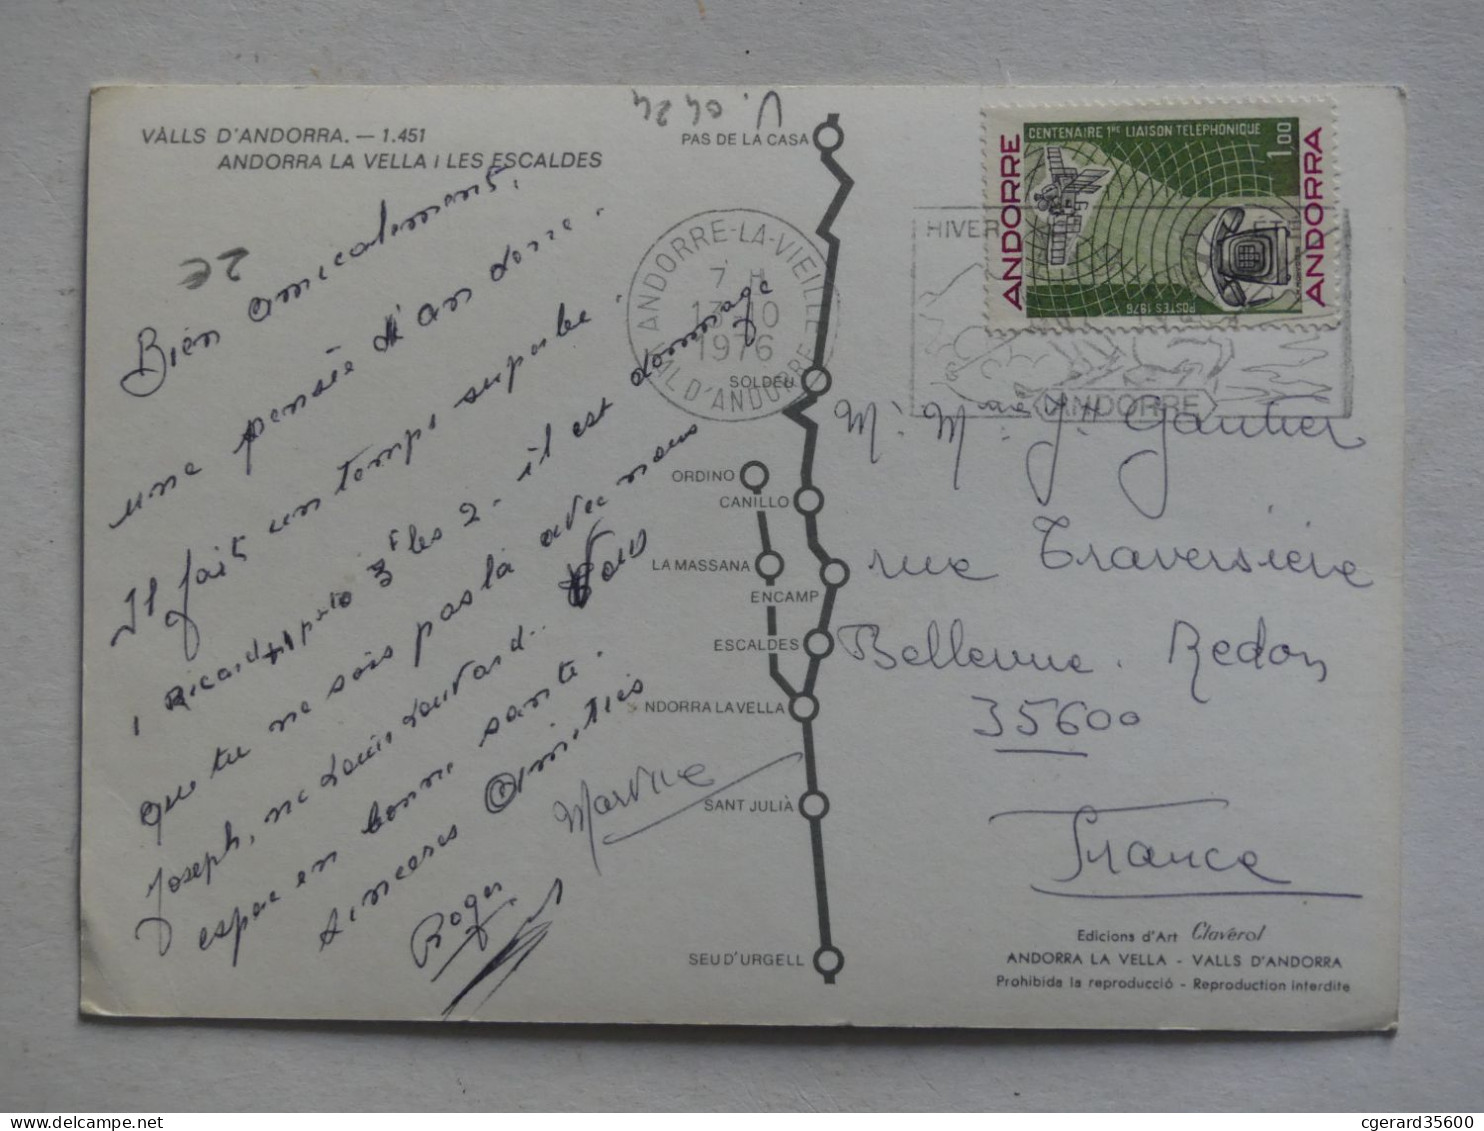 VALLS D'ANDORRA. — 1.451
ANDORRA LA VELLA I LES ESCALDES
V. 0424
2€
Bien amicalement.
une pensée d'an dorre.
Il fait un temps superbe.
1 Ricard après les 2 - il est dommage
que tu ne sois pas là avec nous
Joseph, ne Louis Vous
espère en bonne santé.
sincères Amitiés
Roger
Martine
PAS DE LA CASA
SOLDEU
ORDINO
CANILLO
LA MASSANA
ENCAMP
ESCALDES
NDORRA LA VELLA
SANT JULIÀ
SEU D'URGELL
ANDORRE-LA-VIEILLE
7 H
13-10
1976
VAL D'ANDORRE
HIVER ÉTÉ
ANDORRE
ANDORRE
CENTENAIRE 1RE LIAISON TELEPHONIQUE
1,00
POSTES 1976
ANDORRA
M. Me Jh Gautier
rue Traversière
Bellevue. Redon
35600
France
Edicions d'Art Claverol
ANDORRA LA VELLA - VALLS D'ANDORRA
Prohibida la reproducció - Reproduction interdite
cgerard35600